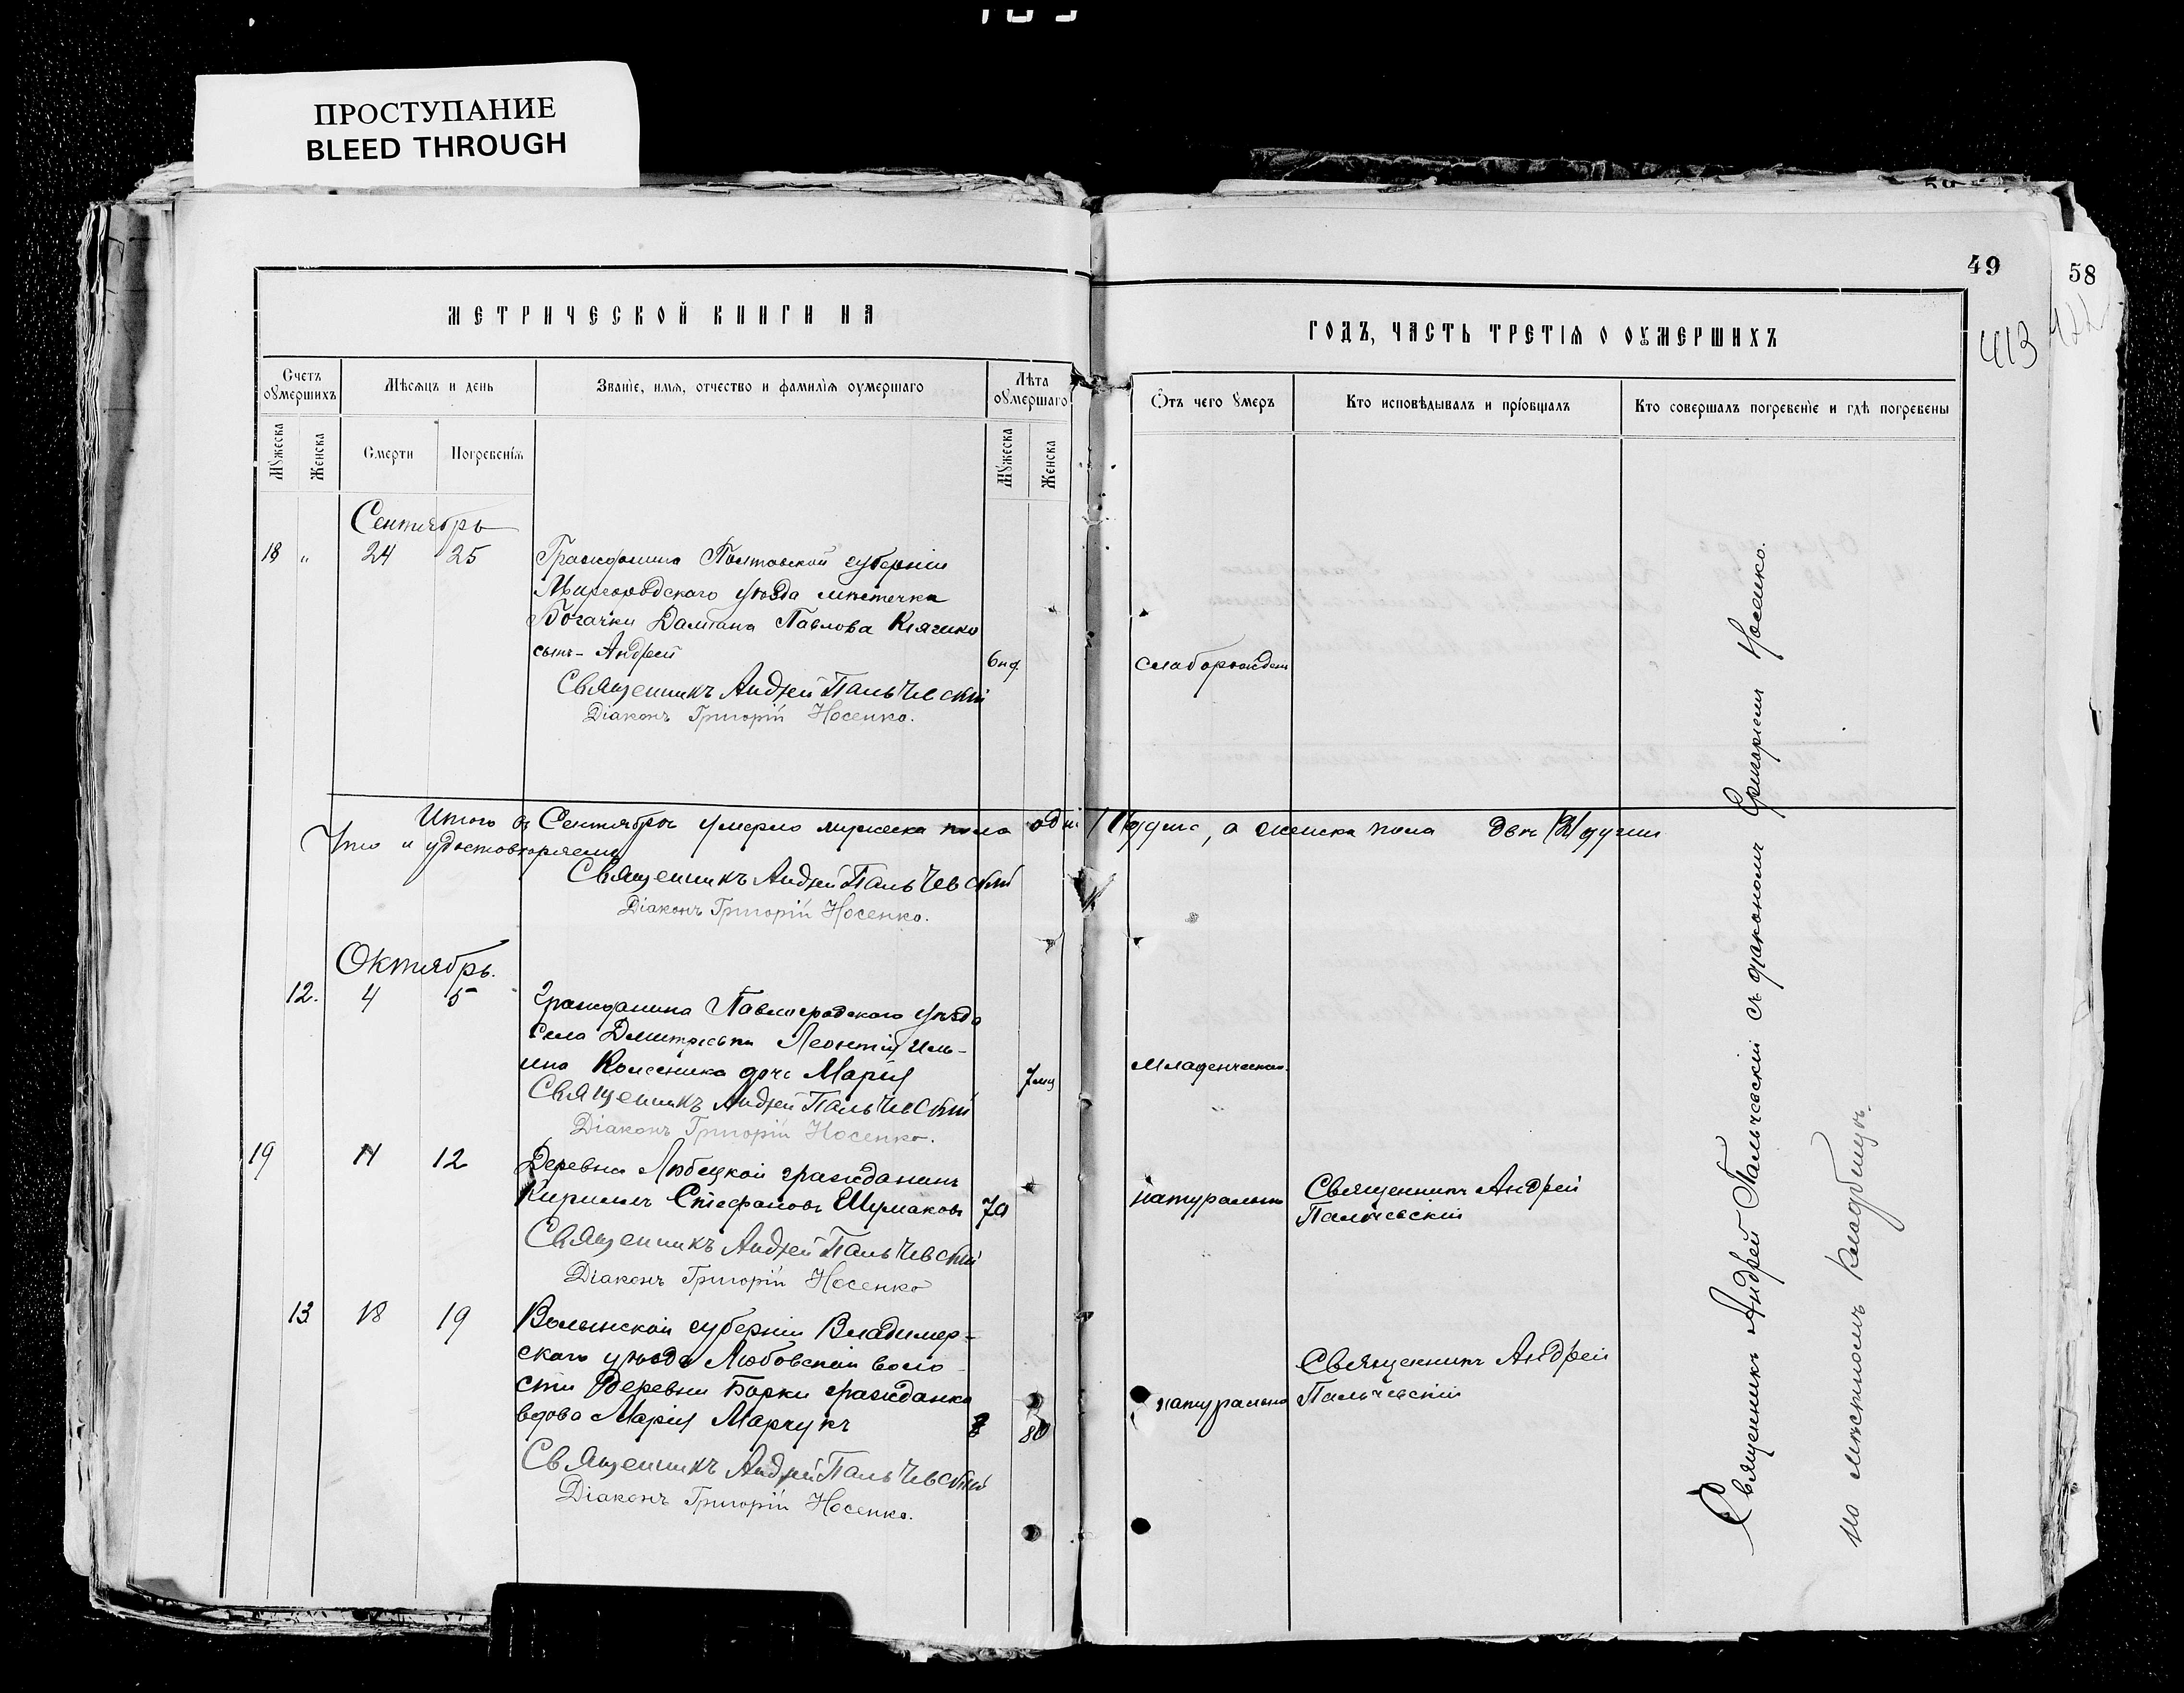 ПРОСТУПАНИЕ
BLEED THROUGH
МЕТРИЧЕСКОЙ КНИГИ НА
Счетъ оумершихъ
Мѣсяцъ и день
Званіе, имя, отчество и фамилія оумершаго
Лѣта оумершаго
Мужеска
Женска
Смерти
Погребенія
Мужеска
Женска
Сентябрь
18 " 24 25 Гражданина Полтавской губерніи
Миргородскаго уѣзда мѣстечка
Богачки Даміана Павлова
сынъ - Андрей
6 нд.
Священникъ Андрей Пальчевскій
Діаконъ Григорій Носенко.
Итого въ Сентябрѣ умерло мужеска пола
Что и удостовѣряемъ
Священникъ Андрей Пальчевскій
Діаконъ Григорій Носенко.
Октябрь.
12. 4 5 Гражданина Павлоградскаго уѣзда
села Леонтія Иль-
ина Колесника дочь Марія
7 мц
Священникъ Андрей Пальчевскій
Діаконъ Григорій Носенко.
19 11 12 Деревни гражданинъ
Кириллъ Стефановъ Шумаковъ 70
Священникъ Андрей Пальчевскій
Діаконъ Григорій Носенко
13 18 19 Волынской губерніи Владимер-
скаго уѣзда Любовской воло-
сти деревни Борки гражданка
вдова Марія Марчукъ 80
Священникъ Андрей Пальчевскій
Діаконъ Григорій Носенко.
49
58
413
422
ГОДЪ, ЧАСТЬ ТРЕТІЯ О ОУМЕРШИХЪ
Отъ чего умеръ
Кто исповѣдывалъ и пріобщалъ
Кто совершалъ погребеніе и гдѣ погребены
слаборожден
душа, а женска пола двѣ /2/ души
младенческая.
натурально
Священникъ Андрей
Пальчевскій
натурально
Священникъ Андрей
Пальчевскій
Священникъ Андрей Пальчевскій съ діакономъ Григоріемъ Носенко.
на мѣстномъ кладбищѣ.